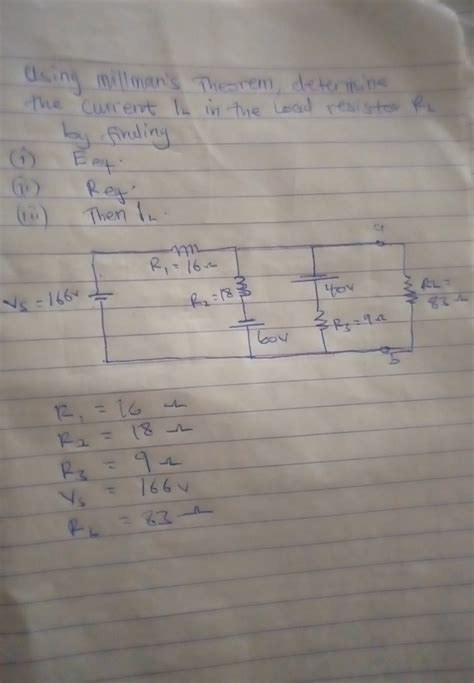 Using millman's Theorem, determine
the current IL in the load resistor RL
by finding
(i) Eeq.
(ii) Req.
(iii) Then IL.
a
R1 = 16 Ω
Vs = 166v
R2 = 18
40v
RL =
83 Ω
R3 = 9 Ω
60v
b
R1 = 16 Ω
R2 = 18 Ω
R3 = 9 Ω
Vs = 166v
RL = 83 Ω